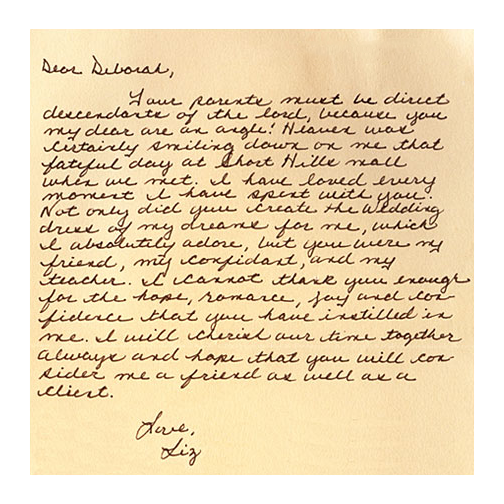 Dear Deborah,
Your parents must be direct
descendants of the lord, because you
my dear are an angle! Heaven was
certainly smiling down on me that
fateful day at Short Hills mall
when we met. I have loved every
moment I have spent with you.
Not only did you create the wedding
dress of my dreams for me, which
I absolutely adore, but you were my
friend, my confidant, and my
teacher. I cannot thank you enough
for the hope, romance, joy and con-
fidence that you have instilled in
me. I will cherish our time together
always and hope that you will con-
sider me a friend as well as a
client.
Love,
Liz